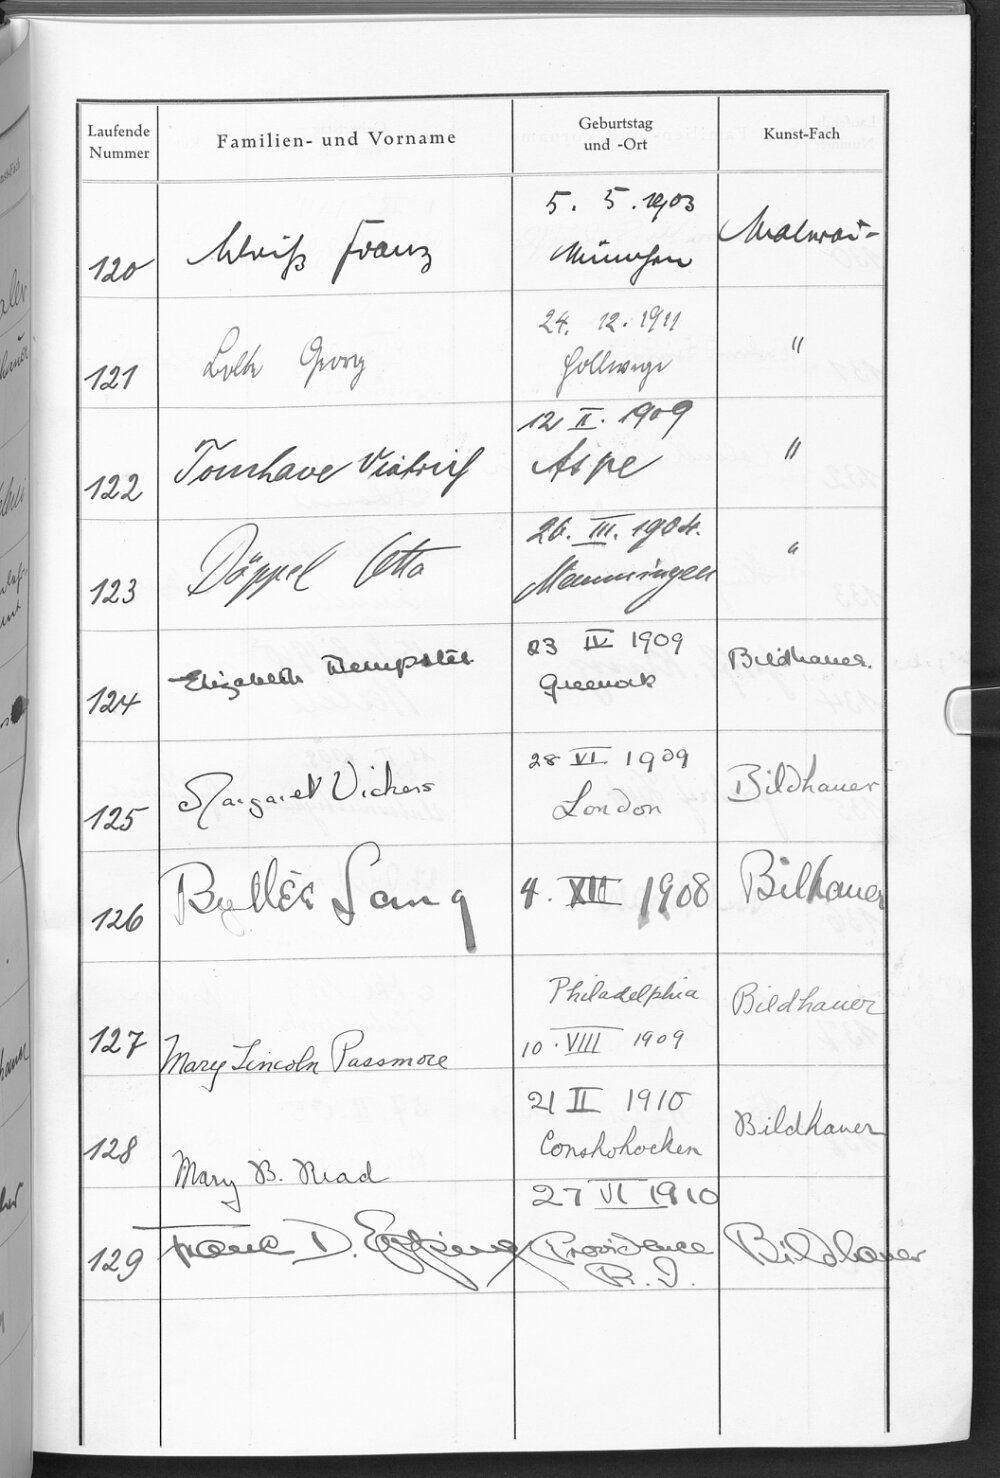 Laufende Nummer
Familien- und Vorname
Geburtstag und -Ort
Kunst-Fach
120 Weiß Franz 5. 5. 1903 München Malerei-
121 Georg 24. 12. 1911 "
122 Tomhave Dietrich 12 II. 1909 Aspe "
123 Döppel Otto 26. III. 1904. "
124 Elizabeth Dempster 23 IV 1909 Greenock Bildhauer.
125 Margaret Vickers 28 VI 1909 London Bildhauer
126 Byllee Lang 4. XII 1908 Bilhauer
127 Mary Lincoln Passmore Philadelphia 10. VIII 1909 Bildhauer
128 Mary B. Read 21 II 1910 Conshohocken Bildhauer
129 D. 27 VI 1910 Providence R. I. Bildhauer